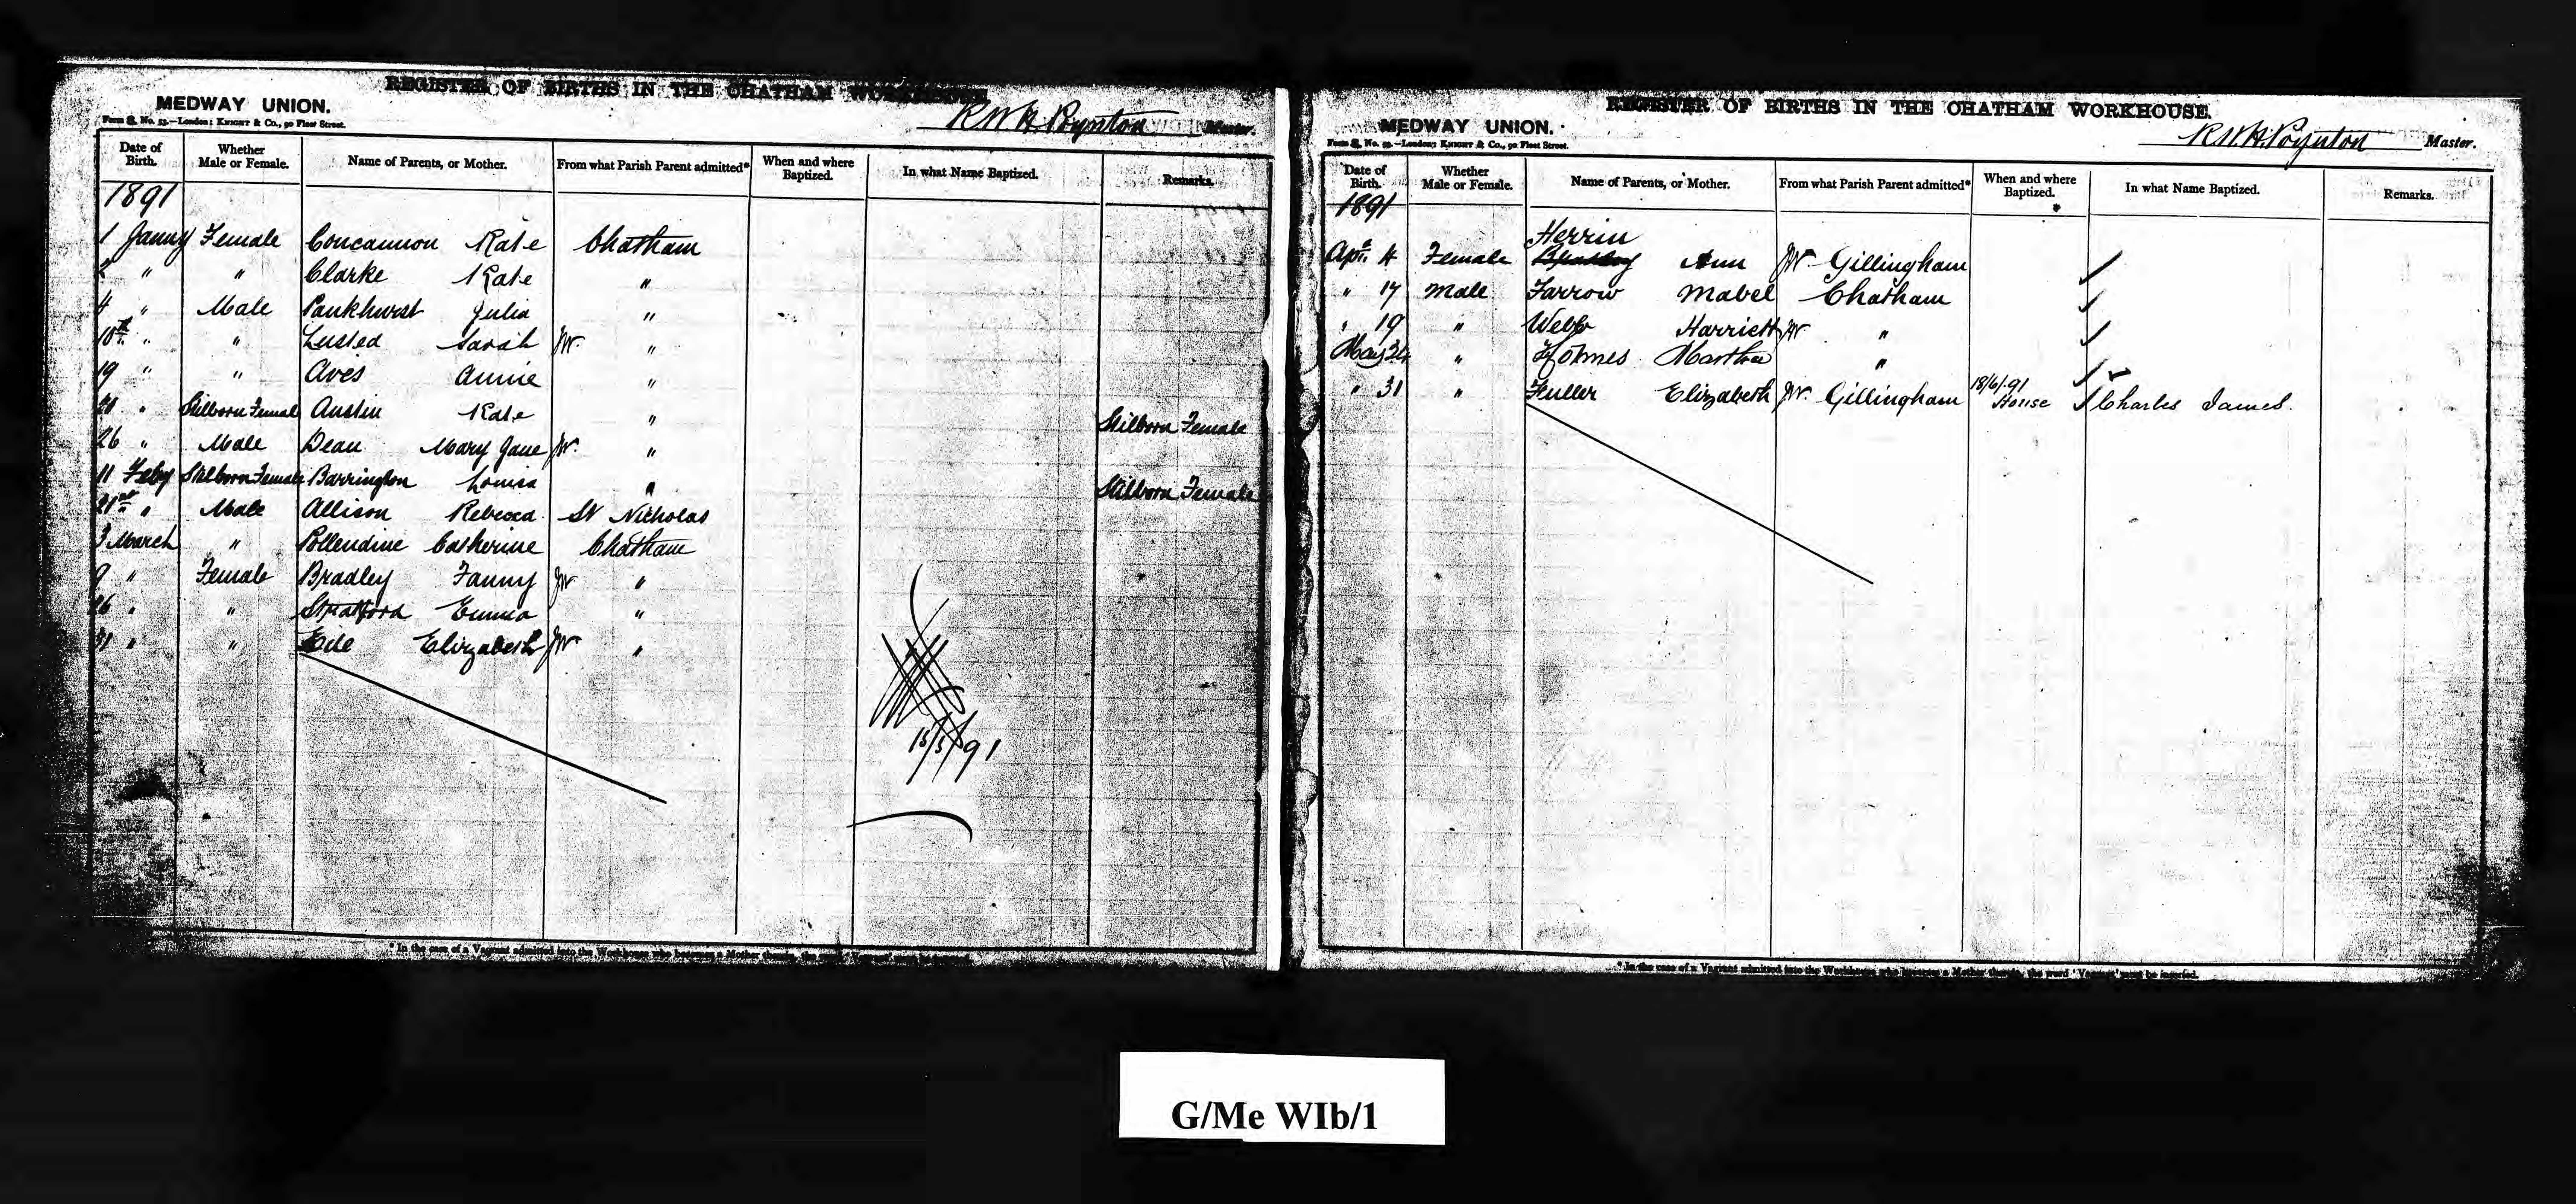 REGISTER OF BIRTHS IN THE CHATHAM WORKHOUSE
MEDWAY UNION.
Form No. 53.—London: Knight & Co., 90 Fleet Street.
R W H Poynton Master.
Date of Birth. Whether Male or Female. Name of Parents, or Mother. From what Parish Parent admitted* When and where Baptized. In what Name Baptized. Remarks.
1891
1 Janny Female Concannon Kate Chatham
2 " " Clarke Kate "
4 " Male Pankhurst Julia "
10th " " Lusted Sarah JW. "
19 " " Aves Annie "
" Stilborn Female Austin Kate " Stilborn Female
26 " Male Dean Mary Jane JW. "
11 Feby Stilborn Female Barrington Louisa " Stilborn Female
21st " Male Allison Rebecca St Nicholas
3 March " Pollendine Catherine Chatham
9 " Female Bradley Fanny JW "
26 " " Stratford Emma "
31 " " Ede Elizabeth JW "
15/5/91
* In the case of a Vagrant admitted into the Workhouse who becomes a Mother therein, the word 'Vagrant' must be inserted.
REGISTER OF BIRTHS IN THE CHATHAM WORKHOUSE.
MEDWAY UNION.
Form No. 53.—London: Knight & Co., 90 Fleet Street.
R.W.H. Poynton Master.
Date of Birth. Whether Male or Female. Name of Parents, or Mother. From what Parish Parent admitted* When and where Baptized. In what Name Baptized. Remarks.
1891
Herrin
Apr. 4 Female Ann JW Gillingham
" 17 Male Farrow Mabel Chatham
" 19 " Webb Harriett JW "
May 24 " Holmes Martha "
" 31 " Fuller Elizabeth JW. Gillingham 18/6/91 House Charles James.
* In the case of a Vagrant admitted into the Workhouse who becomes a Mother therein, the word 'Vagrant' must be inserted.
G/Me WIb/1